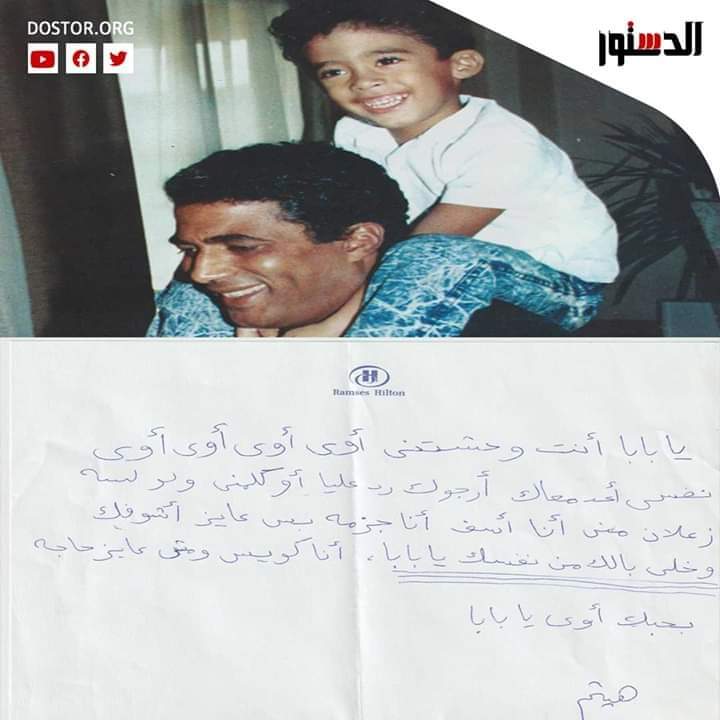 DOSTOR.ORG
الدستور
Ramses Hilton
يا بابا أنت وحشتنى أوى أوى أوى أوى
نفسى أقعد معاك أرجوك رد عليا أو كلمنى ولو لسه
زعلان منى أنا آسف أنا جزمه بس عايز أشوفك
وخلى بالك من نفسك يا بابا، أنا كويس ومش عايز حاجه
بحبك أوى يا بابا
هيثم